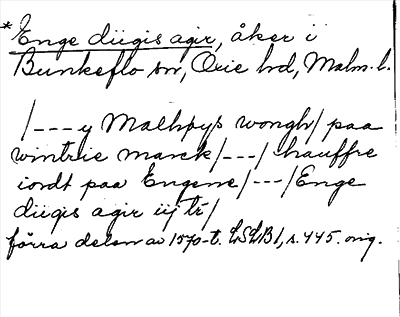 *Enge diigis agir, åker i
Bunkeflo sn, Oxie hd, Malm. l.
/---y Malhøys wongh/ paa
wintrie marck/---/ hauffre
iordt paa Engene/---/Enge
diigis agir iij tr/
förra delen av 1570-t. LSLB 1, s. 445. orig.